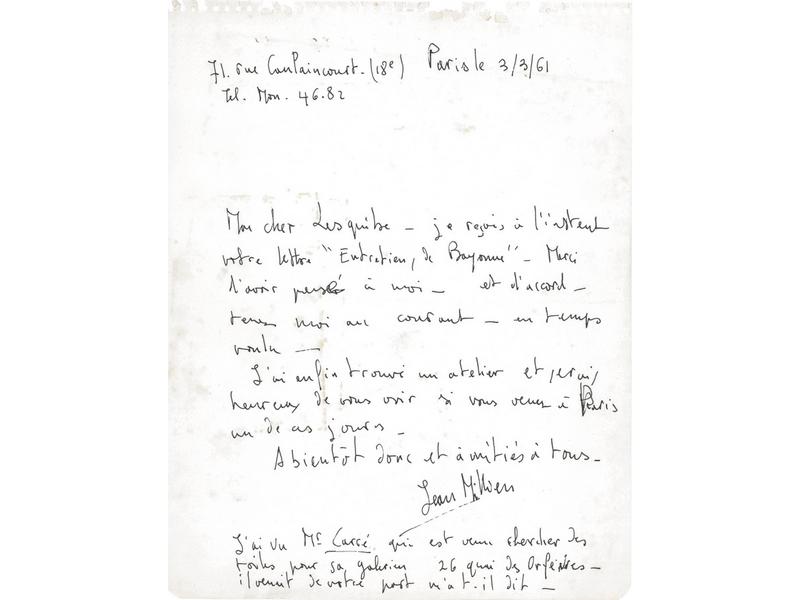 71. rue Caulaincourt. (18e) Paris le 3/3/61
Tel. Mon. 46.82
Mon cher Lesquibe _ je reçois à l'instant
votre lettre "Entretien, de Bayonne" _ Merci
d'avoir pensé à moi _ et d'accord _
tenez moi au courant _ en temps
voulu _
J'ai enfin trouvé un atelier et serais
heureux de vous voir si vous venez à Paris
un de ces jours _
A bientôt donc et amitiés à tous _
Jean
J'ai vu Mr Carré qui est venu chercher des
toiles pour sa galerie 26 quai des Orfèvres _
il venait de votre part m'a t-il dit _